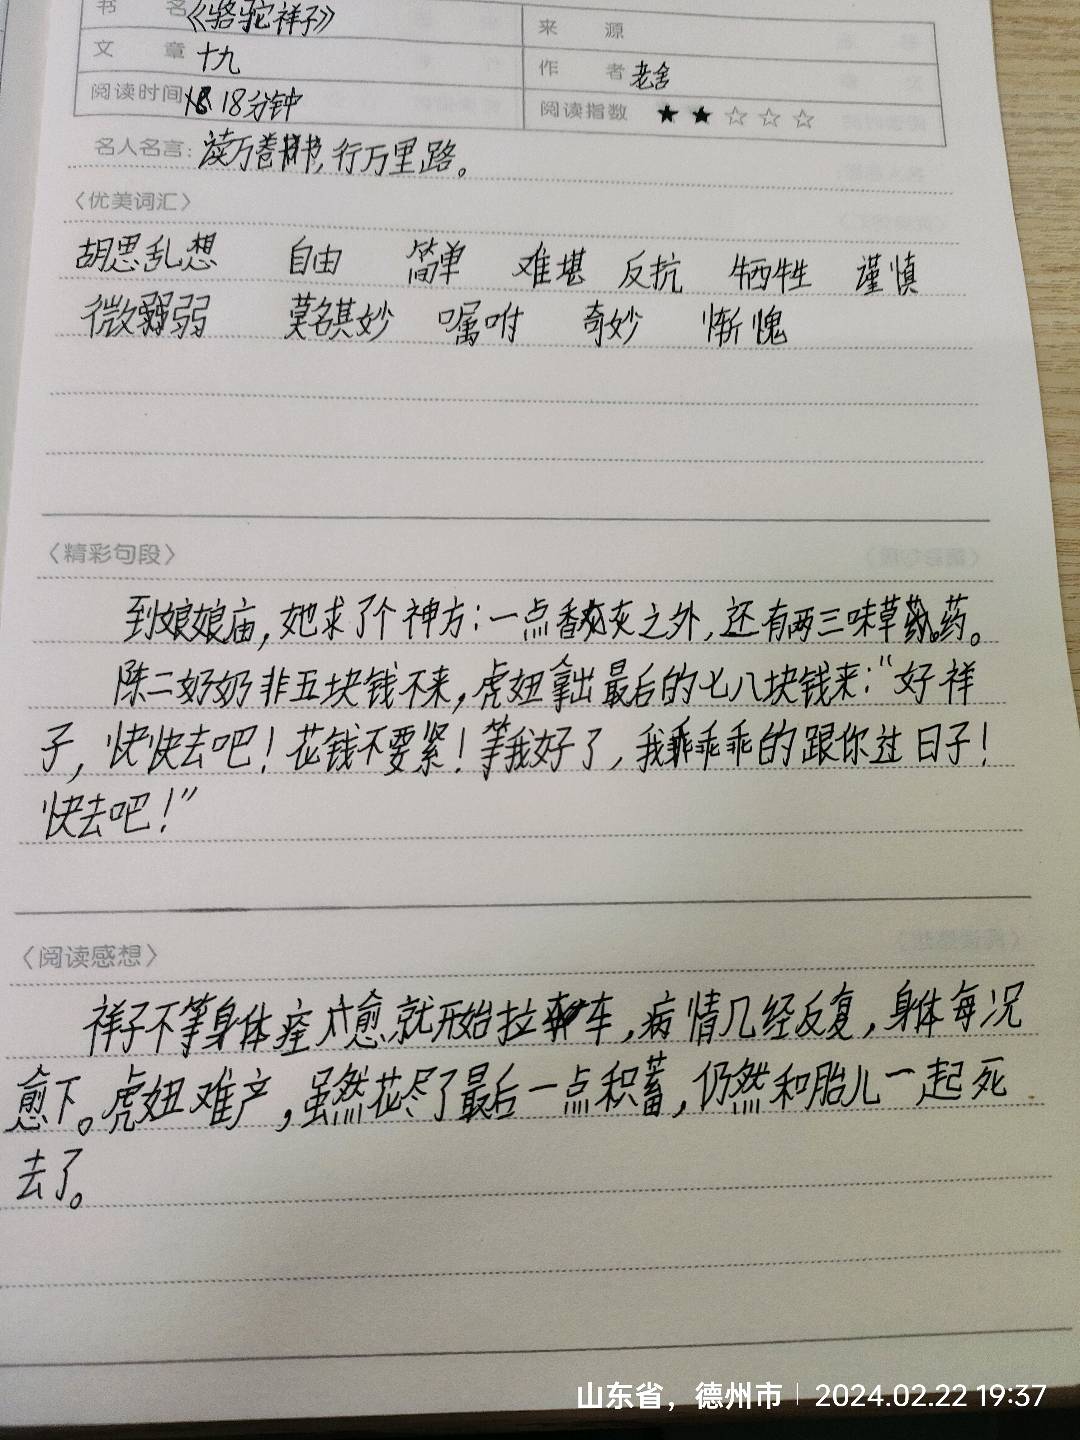 书 名 《骆驼祥子》 来 源
文 章 十九 作 者 老舍
阅读时间 18分钟 阅读指数 ★★☆☆☆
名人名言：读万卷书，行万里路。
〈优美词汇〉
胡思乱想 自由 简单 难堪 反抗 牺牲 谨慎
微弱 莫名其妙 嘱咐 奇妙 惭愧
〈精彩句段〉
到娘娘庙，她求了个神方：一点香灰之外，还有两三味草药。
陈二奶奶非五块钱不来，虎妞拿出最后的七八块钱来：“好祥
子，快快去吧！花钱不要紧！等我好了，我乖乖的跟你过日子！
快去吧！”
〈阅读感想〉
祥子不等身体痊愈就开始拉车，病情几经反复，身体每况
愈下。虎妞难产，虽然花尽了最后一点积蓄，仍然和胎儿一起死
去了。
山东省，德州市 | 2024.02.22 19:37